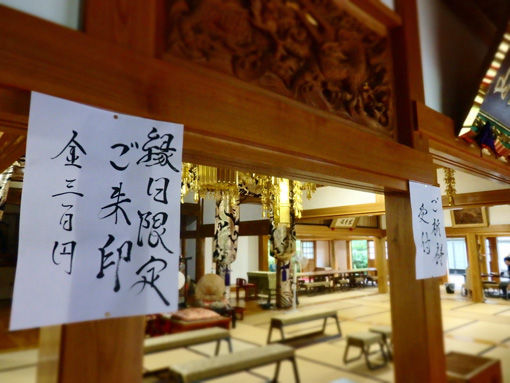 縁日限定
ご朱印
金三百円
ご祈祷
受付